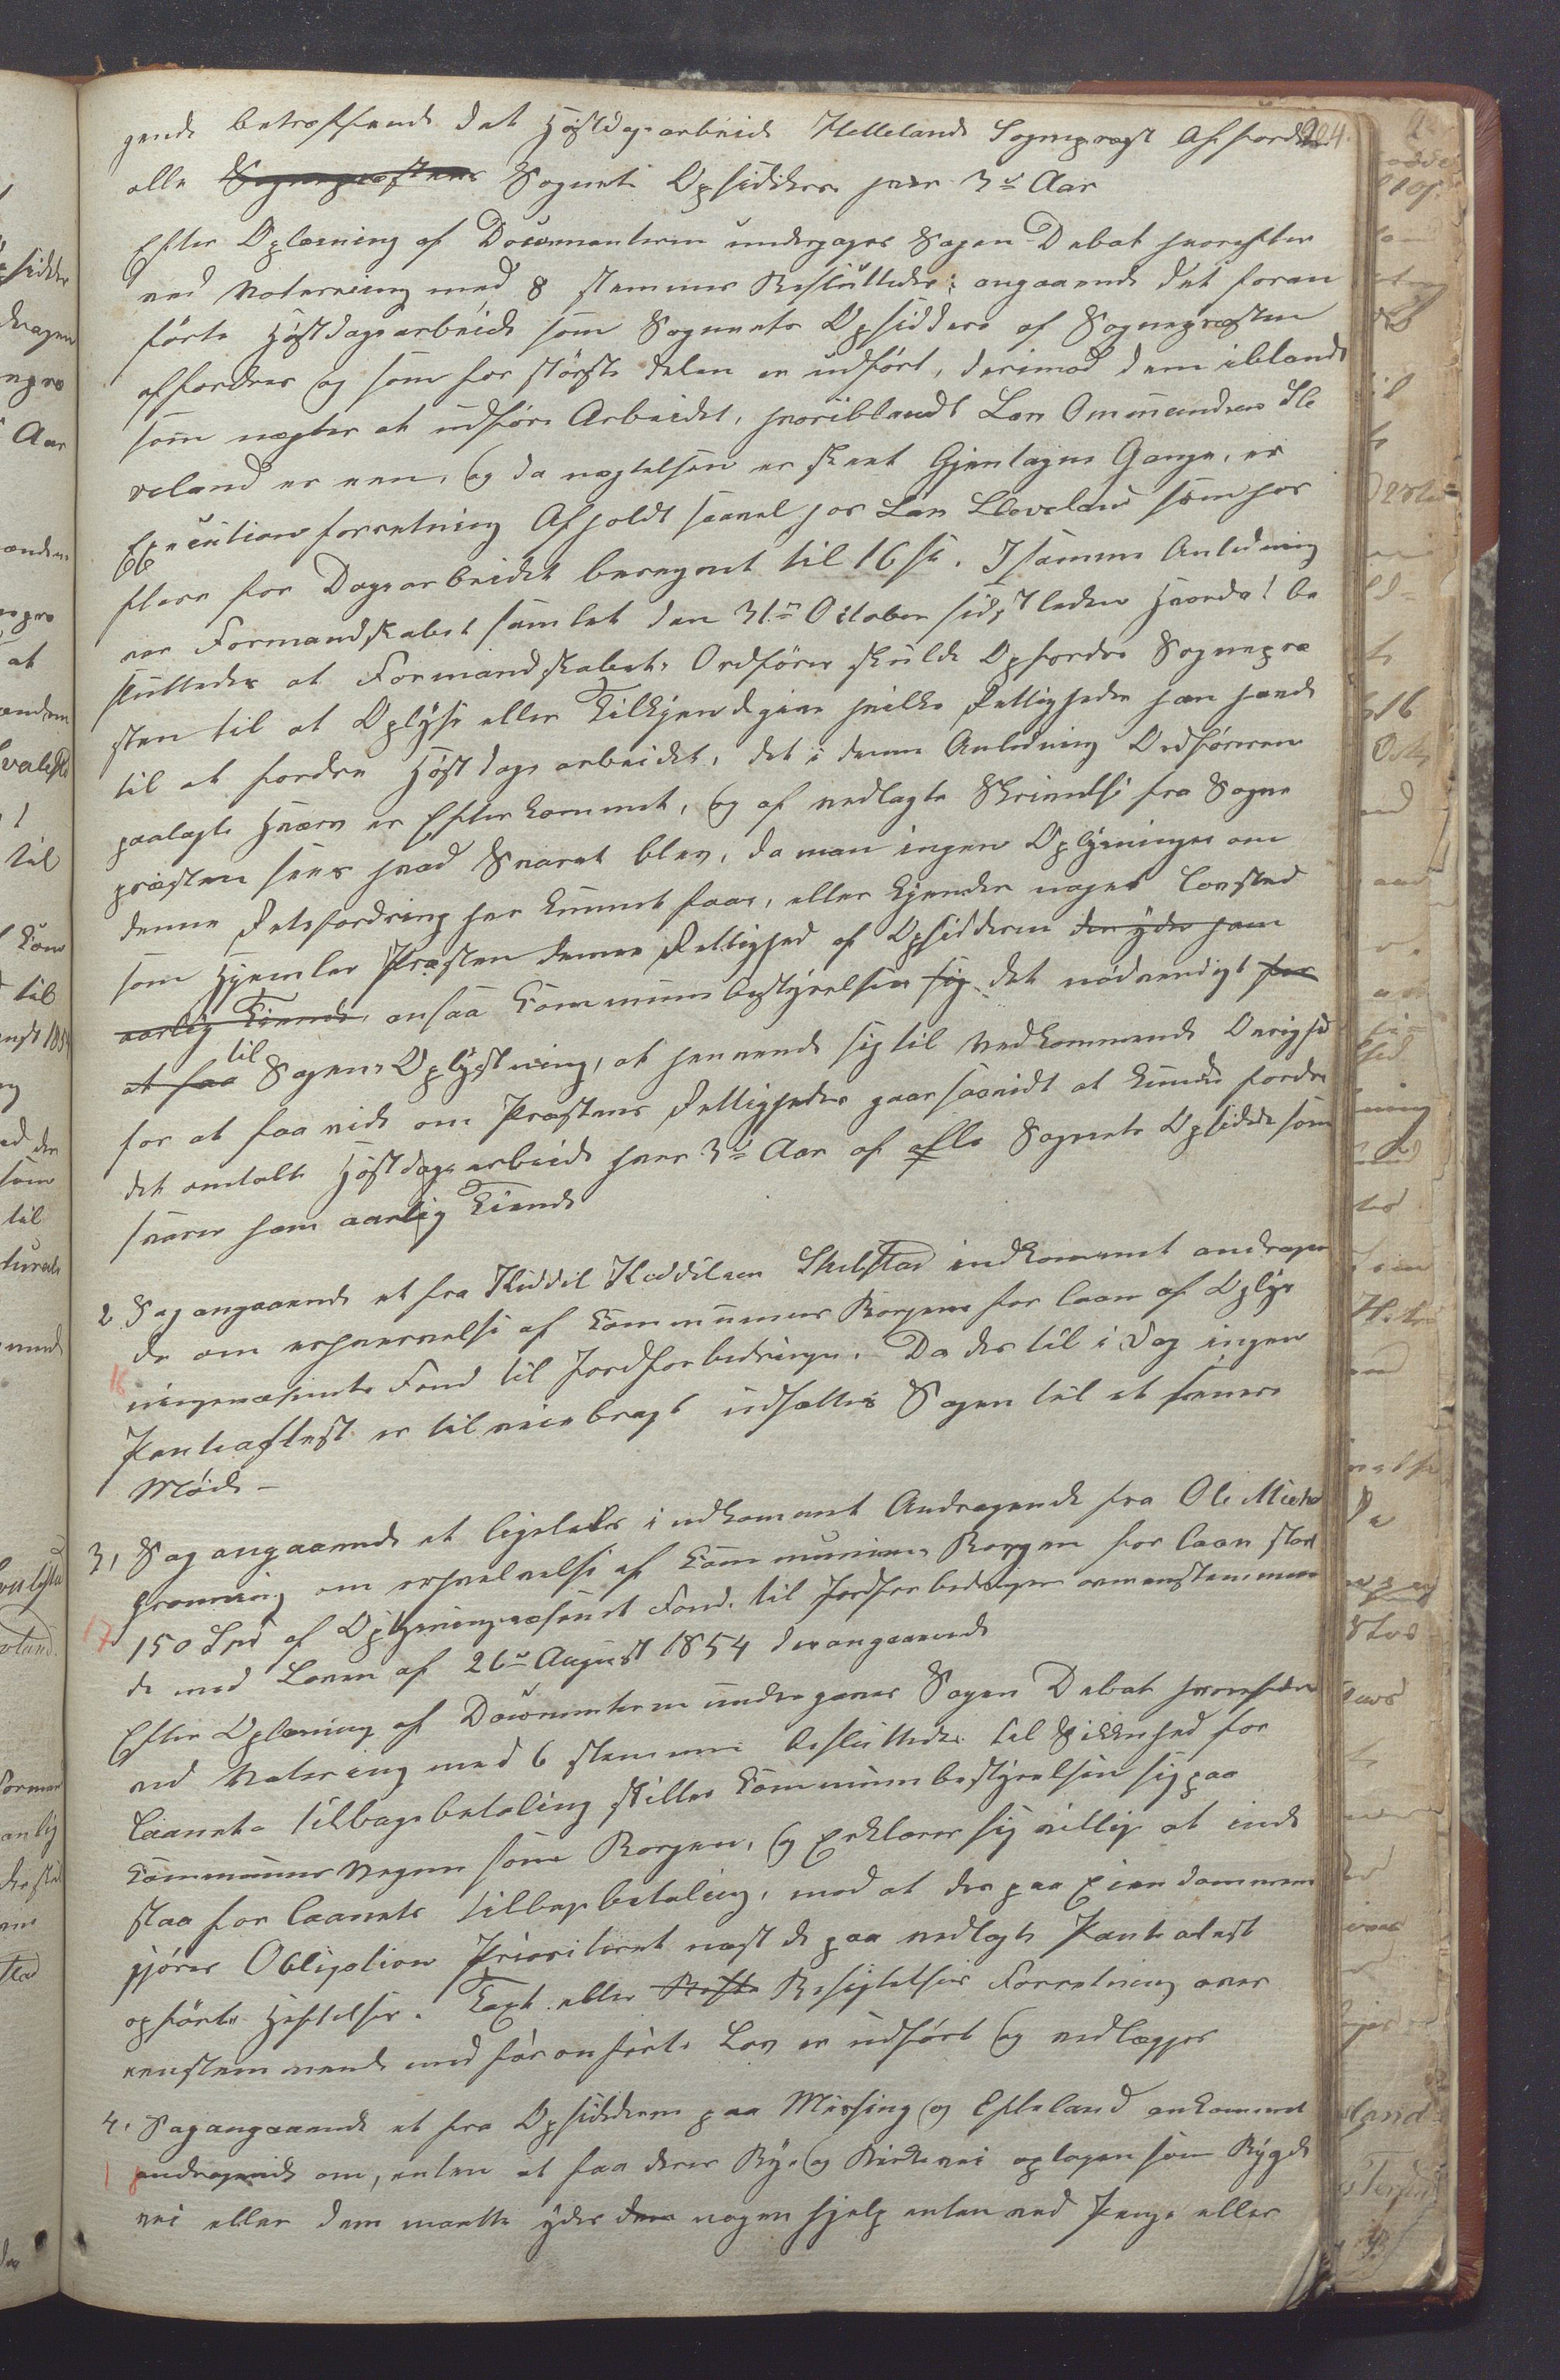 gende betræffende det Høstdagsarbeide Hellelands Sogneprest Affordrer 224.
alle Sognepræstens Sognets Opsiddere hver 3de Aar
Efter Oplæsning af Documenterne undergages Sagen Debat hvorefter
ved Votering med 8 stemmer Besluttedes: angaaende det foran
førte Høstdagsarbeide som Sognets Opsiddere af Sognepræsten
affordres og som for største delen er udført, derimod dem iblandt
som nægter at udføre Arbeidet, hvoriblandt Lars Ommundsen Sle
veland er een, og da nægtelsen er skeet Gjentagne Gange, er
Execution forretning Afholdt saavel hos Lars Sleveland som hos
flere for Dagsarbeidet beregnet til 16 sk. I samme Anledning
var Formandskabet samlet den 31te October sidstleden hvorda! be
sluttedes at Formandskabets Ordfører skulde Opfordre Sognepræ
sten til at Oplyse eller Tilkjendegive hvilke Rettigheder han havde
til at fordre Høstdagsarbeidet, det i denne Anledning Ordføreren
paalagte Hværv er Efterkommet, og af vedlagte Skrivelse fra Sogne
præsten sees hvad Svaret blev, da man ingen Oplysninger om
denne Retsfordring har kunnet faae, eller kjender noget Lovsted
som Hjemler Præsten denne Rettighed af Opsidderne der yder ham
aarlig Tiende, ansaa Kommunebestyrelsen sig det nødvendigt for
at faa til Sagens Oplysning, at henvende sig til Vedkommende Øvrighed
for at faa vide om Præstens Rettigheder gaar saavidt at kunde fordre
det omtalte Høstdagsarbeide hver 3de Aar af alle Sognets Opsiddere som
svarer ham aarlig Tiende
2 Sag angaaende et fra Kiddil Kiddilsen Skulstad indkommet andragen
de om erhvervelse af Kommunens Borgen for Laan af Oplys
16 ningsvæsenets Fond til Jordforbedringer. Da der til i Dag ingen
Panteattest er tilveiebragt udsættes Sagen til et senere
Møde –
3, Sag angaaende et ligeledes indkommet Andragende fra Ole
om erhvervelse af Kommunens Borgen for Laan stort
17 150 Spd af Oplysningsvæsenets Fond. til Jordforbedringer overensstemmen
de med Loven af 26de August 1854 derangaaende
Efter Oplæsning af Documenterne undergaves Sagen Debat hvorefter
ved Votering med 6 stemmer besluttedes: til Sikkerhed for
Laanets Tilbagebetaling stiller Kommunebestyrelsen sig paa
Kommunens Vegne som Borgen, og Erklærer sig villig at inde
staa for Laanets Tilbagebetaling, mod at der paa Eiendommen
gjøres Obligation Prioriteret næst de paa vedlagte Panteatest
opførte Heftelser. Taxt eller Besigtelses Forretning over
eensstemmende med foranførte Lov er udført og vedlægges
4. Sag angaaende et fra Opsidderne paa Mæssing og Efteland ankommet
18 andragende om, enten at faa deres By- og Kirkevei optagen som Bygde
vei eller dem maatte ydes den nogen hjelp enten ved Penge eller